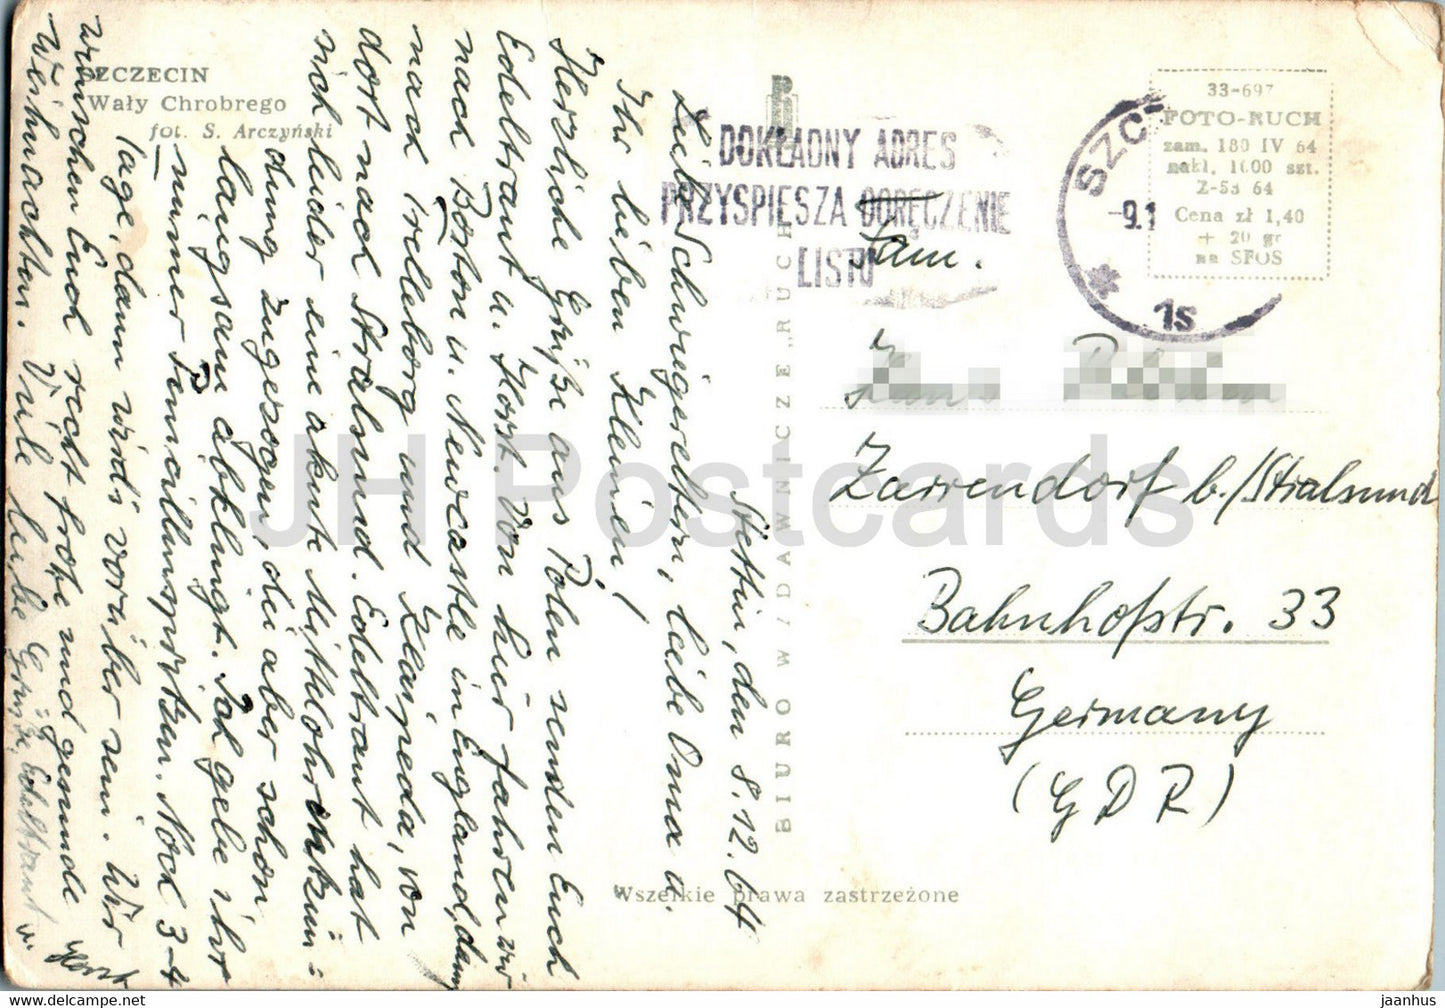 SZCZECIN
Wały Chrobrego
fot. S. Arczyński
Stettin, den 8.12.64
Liebe Schwiegereltern, liebe Oma u.
Ihr lieben Kleinen!
Herzliche Grüße aus Polen senden Euch
Edeltraut u. Horst. Von hier fahren wir
nach Boston u. Newcastle in England, dann
nach Trelleborg und Klaipeda, von
dort nach Stralsund. Edeltraut hat
sich leider eine akute Mittelohrentzün-
dung zugezogen, die aber schon
langsam abklingt. Ich gebe ihr
immer Penicillinspritzen. Noch 3-4
Tage, dann wirds vorüber sein. Wir
wünschen Euch recht frohe und gesunde
Weihnachten. Viele liebe Grüße, Edeltraut u.
Horst
BIURO WYDAWNICZE „RUCH”
DOKŁADNY ADRES
PRZYSPIESZA DORĘCZENIE
LISTU
SZC
-9.1
1s
33-697
FOTO-RUCH
zam. 180 IV 64
nakł. 1000 szt.
Z-53 64
Cena zł 1,40
+ 20 gr
na SFOS
Fam.
Zarrendorf b./Stralsund
Bahnhofstr. 33
Germany
(GDR)
Wszelkie prawa zastrzeżone
JH Postcards
HipPostcard.com
jaanhus